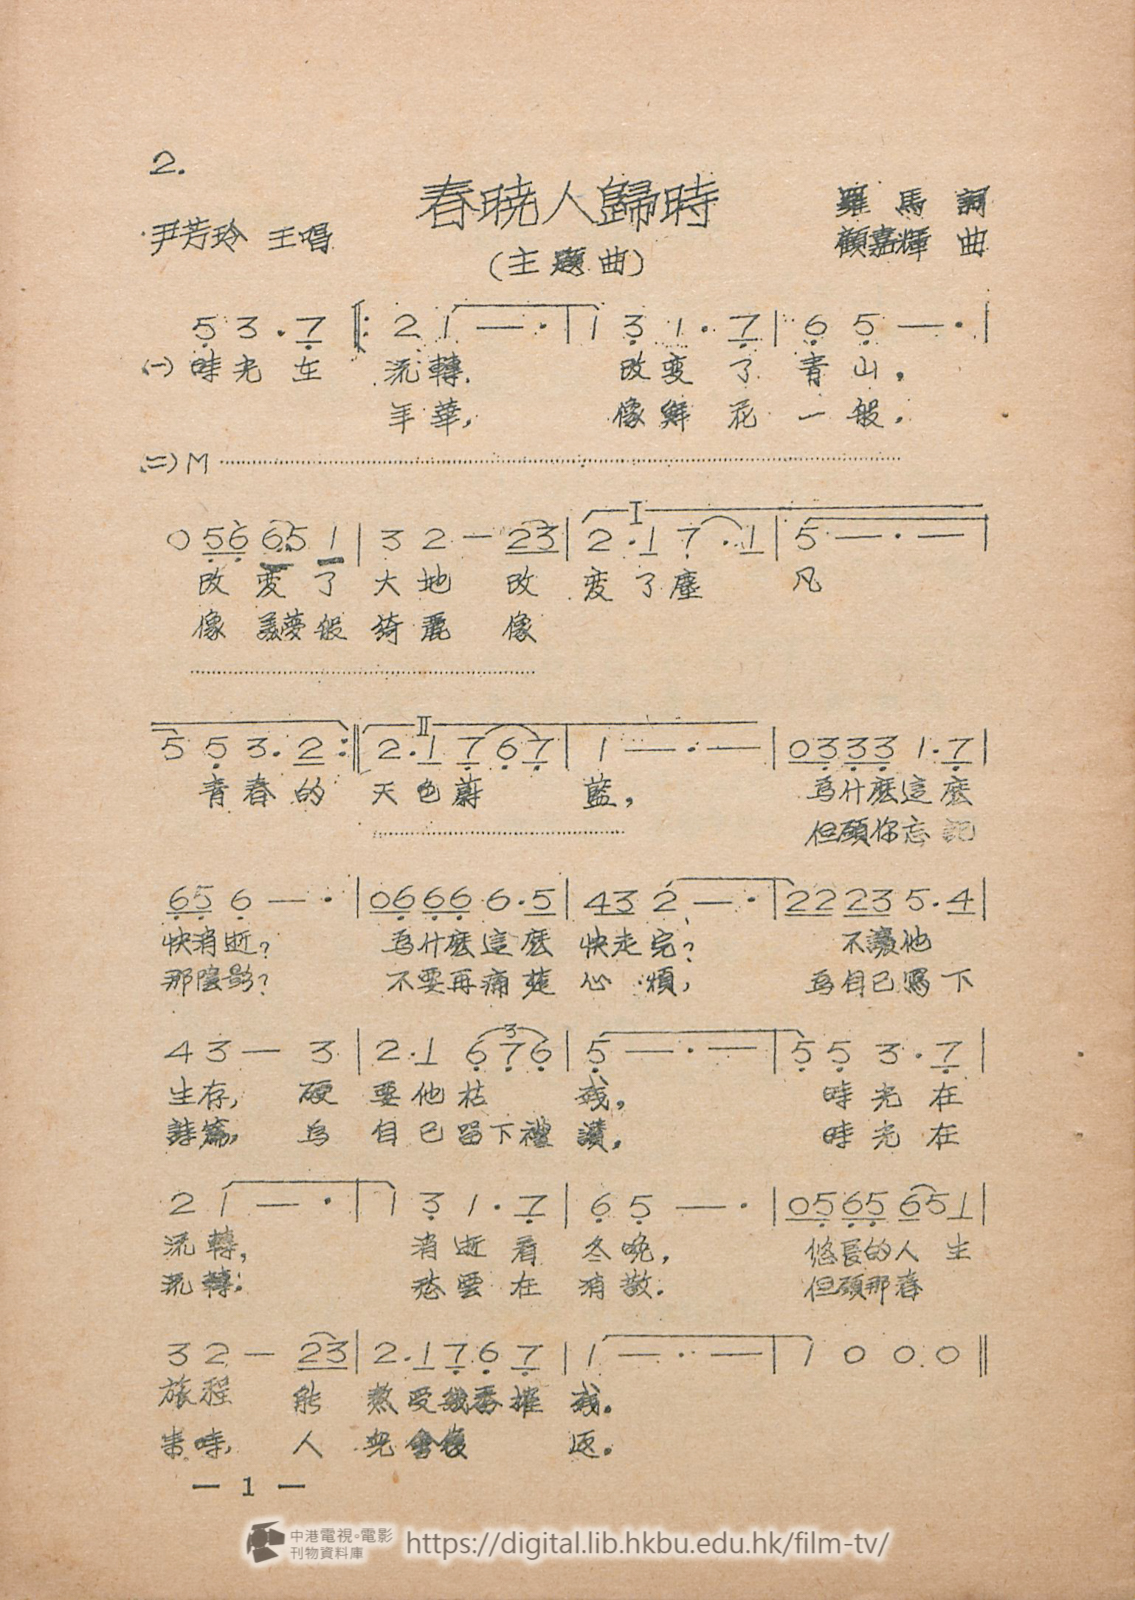 2.
春曉人歸時
尹芳玲 主唱
(主題曲)
羅馬 詞
顧嘉輝 曲
5 3 . 7 ‖: 2 1 — · | 1 3 1 . 7 | 6 5 — · |
(一) 時光在 流轉. 改變了青山,
年華, 像鮮花一般.
(二) M
0 56 65 1 | 3 2 — 23 | 2 . 1 7 . 1 | 5 — · — |
I
改變了大地 改變了塵凡
像 夢般綺麗 像
5 5 3 . 2 :‖ 2 . 1 7 6 7 | 1 — · — | 0 3 3 3 1 . 7 |
II
青春的 天色蔚藍, 為什麼這麼
但願你忘記
6 5 6 — · | 0 6 6 6 6 . 5 | 4 3 2 — · | 2 2 2 3 5 . 4 |
快消逝? 為什麼這麼快走完? 不讓他
那陰影? 不要再痛楚心煩, 為自己寫下
4 3 — 3 | 2 . 1 6 7 6 | 5 — · — | 5 5 3 . 7 |
3
生存, 硬要他枯殘, 時光在
詩篇, 為自己留下禮讚, 時光在
2 1 — · | 1 3 1 . 7 | 6 5 — · | 0 5 6 5 6 5 1 |
流轉, 消逝 冬晚, 悠長的人生
流轉. 愁雲在消散. 但願那春
3 2 — 2 3 | 2 . 1 7 6 7 | 1 — · — | 1 0 0 0 ‖
旅程 能熬受幾番摧殘.
來時, 人兒會復返.
— 1 —
中港電視·電影
刊物資料庫
https://digital.lib.hkbu.edu.hk/film-tv/